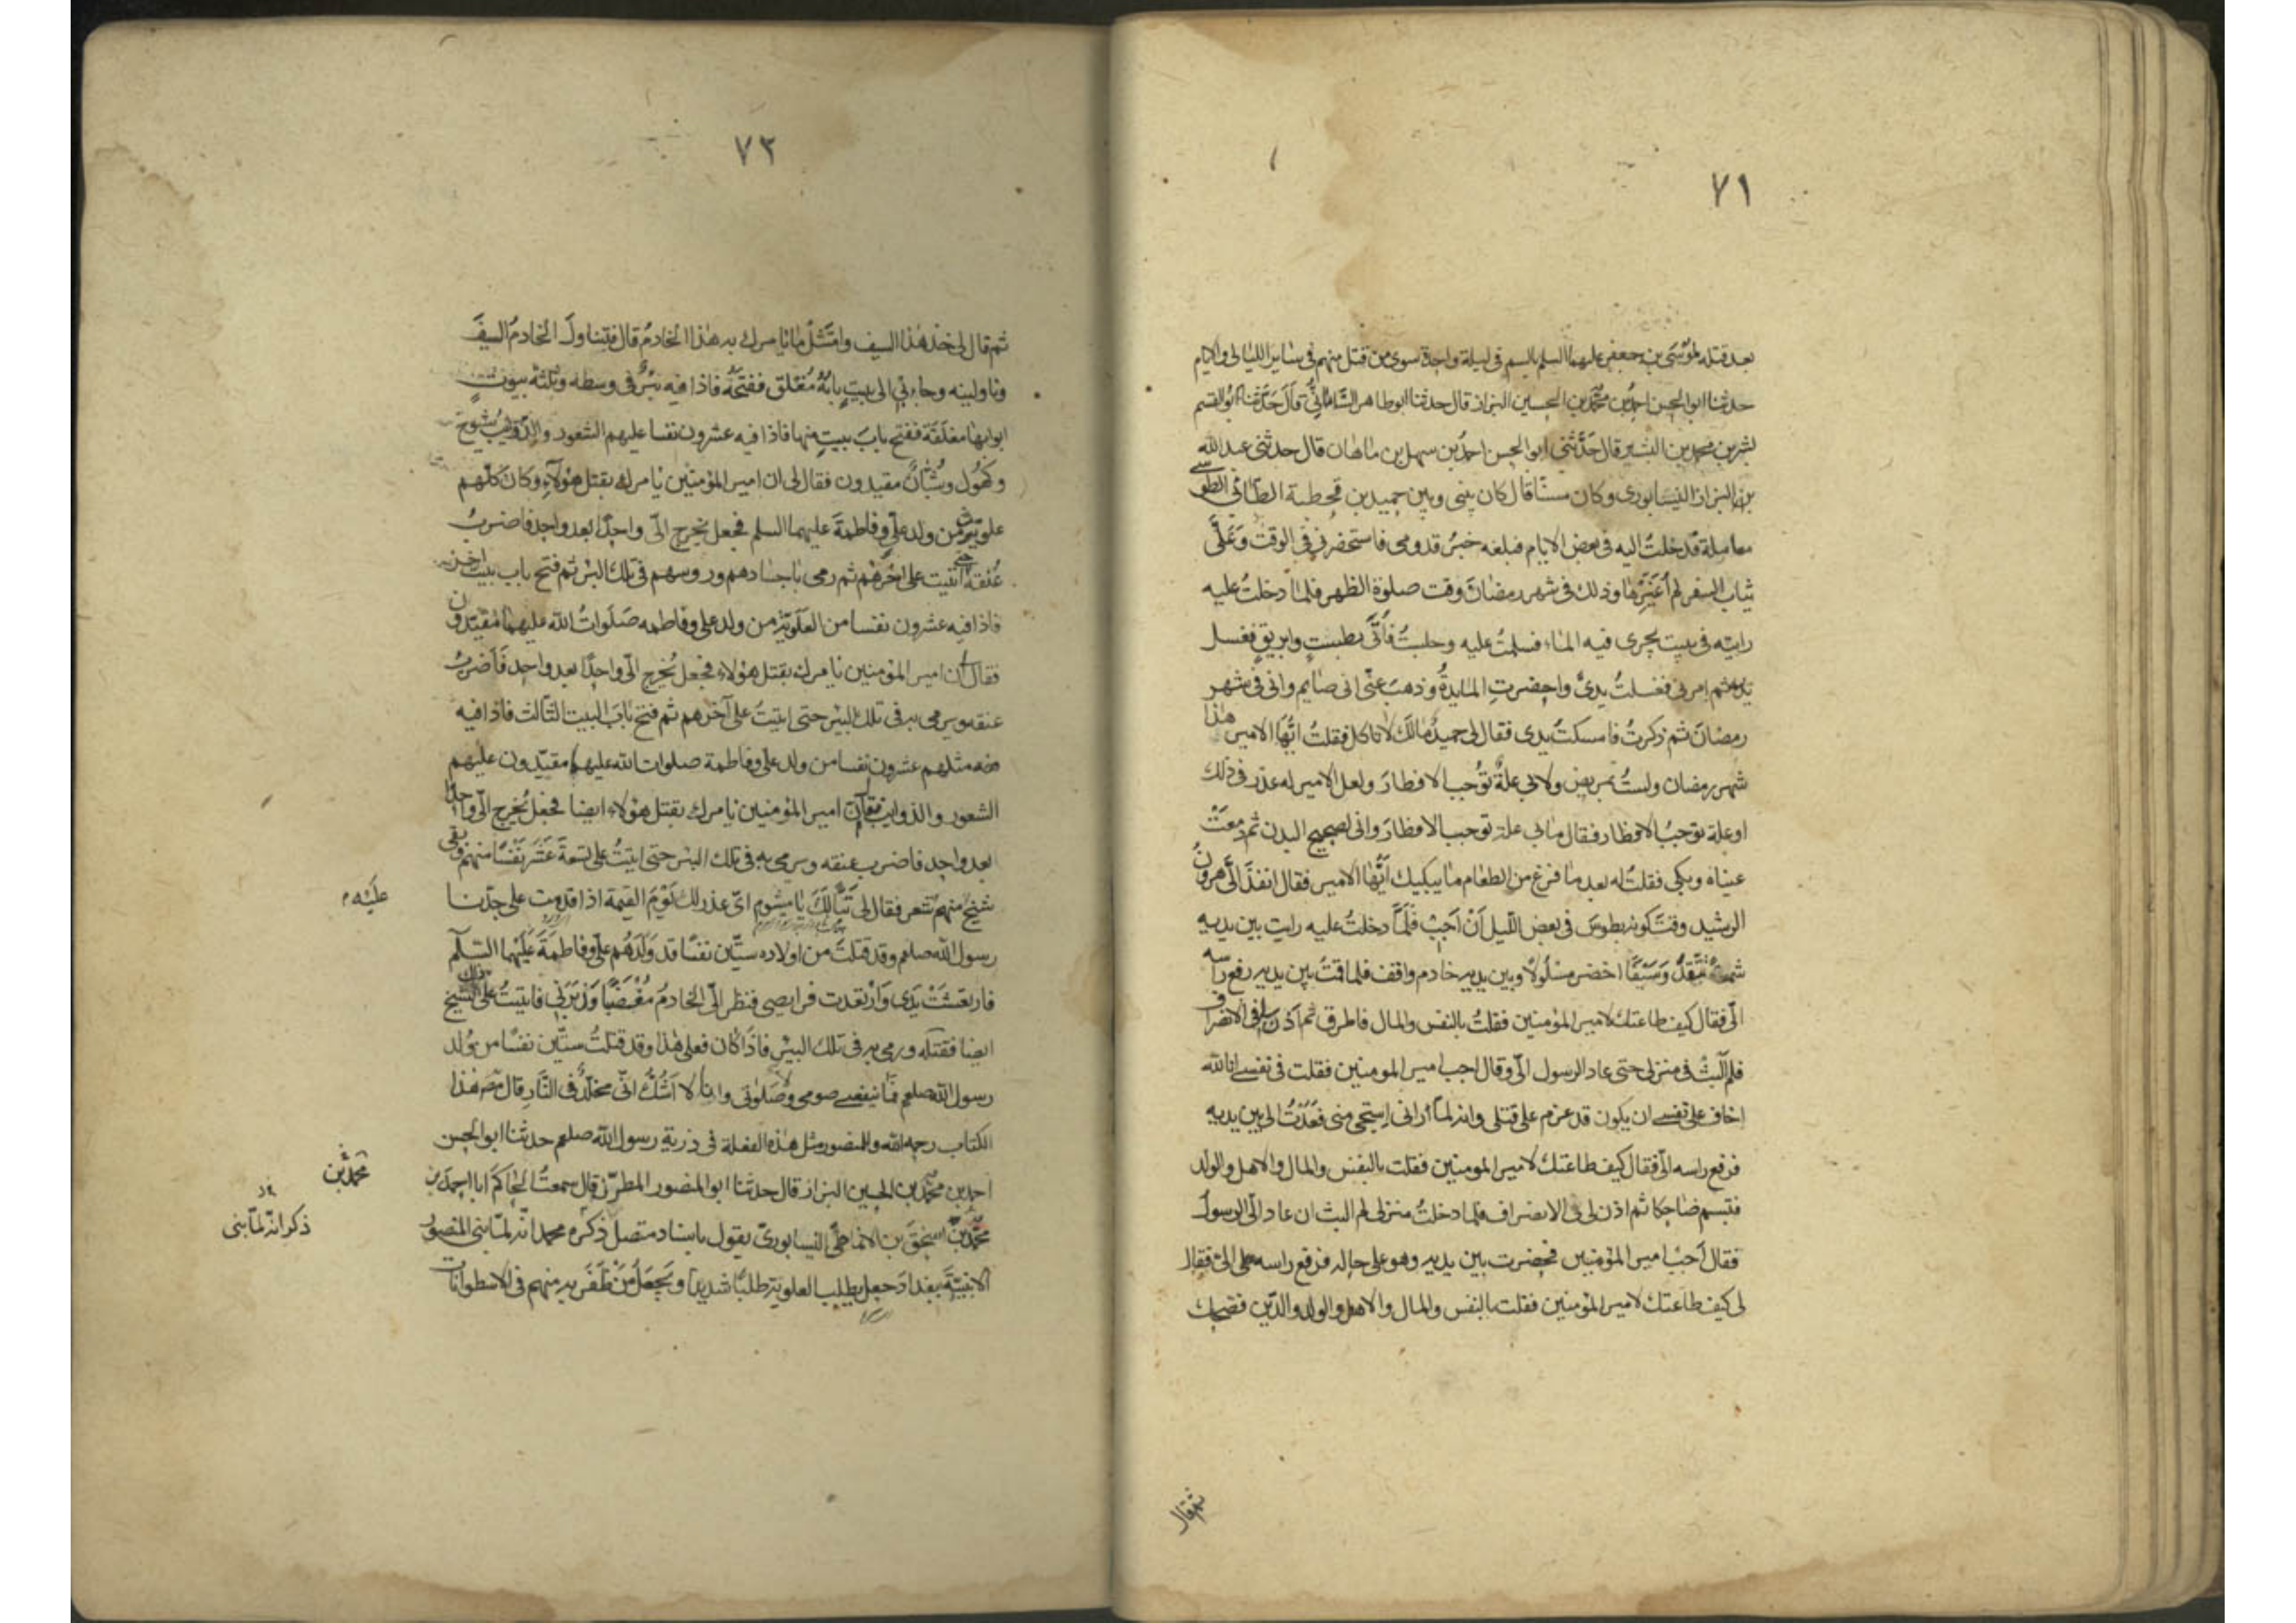 ٧١
بعد قتله لموسى بن جعفر عليهما السلم بالسم فى ليلة واحدة سوى من قتل منهم فى ساير الليالى والايام
حدثنا ابو الحسن احمد بن محمد بن الحسين البزاز قال حدثنا ابو طاهر السامانى قال حدثنا ابو القسم
بشر بن محمد بن البشير قال حدثنى ابو الحسن احمد بن سهل بن ماهان قال حدثنى عبد الله
بن البزاز النيسابورى وكان مسنا قال كان بينى وبين حميد بن قحطبة الطائى الطوسى
معاملة فدخلت اليه فى بعض الايام فبلغه خبر قدومى فاستحضرنى فى الوقت وعلى
ثياب السفر لم اغيرها وذلك فى شهر رمضان وقت صلوة الظهر فلما دخلت عليه
رايته فى بيت يجرى فيه الماء فسلمت عليه وجلست فأتى بطست وابريق فغسل
يديه ثم امرنى فغسلت يدى واحضرت المايدة وذهب عنى انى صايم وانى فى شهر
رمضان ثم ذكرت فامسكت يدى فقال لى حميد مالك لا تاكل فقلت ايها الامير هذا
شهر رمضان ولست بمريض ولا بى علة توجب الافطار ولعل الامير له عذر فى ذلك
او علة توجب الافطار فقال ما بى علة توجب الافطار وانى لصحيح البدن ثم دمعت
عيناه وبكى فقلت له بعد ما فرغ من الطعام ما يبكيك ايها الامير فقال انفذ الى هرون
الرشيد وقت كونه بطوس فى بعض الليل أن أجب فلما دخلت عليه رايت بين يديه
شمعة تتقد وسيفا اخضر مسلولا وبين يديه خادم واقف فلما قمت بين يديه رفع راسه
الى فقال كيف طاعتك لامير المؤمنين فقلت بالنفس والمال فاطرق ثم اذن لى فى الانصراف
فلم البث فى منزلى حتى عاد الرسول الى وقال اجب امير المومنين فقلت فى نفسى انا لله
اخاف على نفسى ان يكون قد عزم على قتلى وانه لما رانى استحيى منى فعدت الى بين يديه
فرفع راسه الى فقال كيف طاعتك لامير المومنين فقلت بالنفس والمال والاهل والولد
فتبسم ضاحكا ثم اذن لى فى الانصراف فلما دخلت منزلى لم البث ان عاد الى الرسول
فقال أجب امير المؤمنين فحضرت بين يديه وهو على حاله فرفع راسه الى فقال
لى كيف طاعتك لامير المؤمنين فقلت بالنفس والمال والاهل والولد والدين فضحك
ثم قال
٧٢
ثم قال لى خذ هذا السيف وامتثل ما يامرك به هذا الخادم قال فتناول الخادم السيف
وناولينه وجاء بى الى بيت بابه مغلق ففتحه فاذا فيه بئر فى وسطه وثلثة بيوت
ابوابها مغلقة ففتح باب بيت منها فاذا فيه عشرون نفسا عليهم الشعور والذوايب شيوخ
وكهول وشبان مقيدون فقال لى ان امير المؤمنين يامرك بقتل هؤلاء وكان كلهم
علوية من ولد على وفاطمة عليهما السلم فجعل يخرج الى واحدا بعد واحد فاضرب
عنقه حتى أتيت على اخرهم ثم رمى باجسادهم وروسهم فى تلك البئر ثم فتح باب بيت اخر
فاذا فيه عشرون نفسا من العلوية من ولد على وفاطمه صلوات الله عليهما مقيدون
فقال ان امير المؤمنين يامرك بقتل هؤلاء فجعل يخرج الى واحدا بعد واحد فأضرب
عنقه ويرمى به فى تلك البئر حتى اتيت على آخرهم ثم فتح باب البيت الثالث فاذا فيه
مثلهم عشرون نفسا من ولد على وفاطمة صلوات الله عليهما مقيدون عليهم
الشعور والذوايب فقال ان امير المؤمنين يامرك بقتل هؤلاء ايضا فجعل يخرج الى واحدا
بعد واحد فاضرب عنقه ويرمى به فى تلك البئر حتى اتيت على تسعة عشر نفسا منهم وبقى
شيخ منهم شعر فقال لى تبا لك يا ميشوم اى عذر لك يوم القيمة اذا قدمت على جدنا
عليه م
رسول الله صلعم وقد قتلت من اولاده ستين نفسا قد ولدهم على وفاطمة عليهما السلم
فارتعشت يدى وارتعدت فرايصى فنظر الى الخادم مغضبا وزبرنى فاتيت على ذلك الشيخ
ايضا فقتلته ورمى به فى تلك البئر فاذا كان فعلى هذا وقد قتلت ستين نفسا من ولد
رسول الله صلعم فما ينفعنى صومى وصلوتى وانا لا اشك انى مخلد فى النار قال مص هذا
الكتاب رحمه الله وللمنصور مثل هذه الفعلة فى ذرية رسول الله صلعم حدثنا ابو الحسن
احمد بن محمد بن الحسين البزاز قال حدثنا ابو المنصور المطرز قال سمعت الحاكم ابا احمد بن
محمد بن
محمد بن اسحق بن الانماطى النيسابورى يقول باسناد متصل ذكره محمد انه لما بنى المنصور
ذكر انه لما بنى
الابنية ببغداد جعل يطلب العلوية طلبا شديدا ويجعل من ظفر به منهم فى الاسطوانات